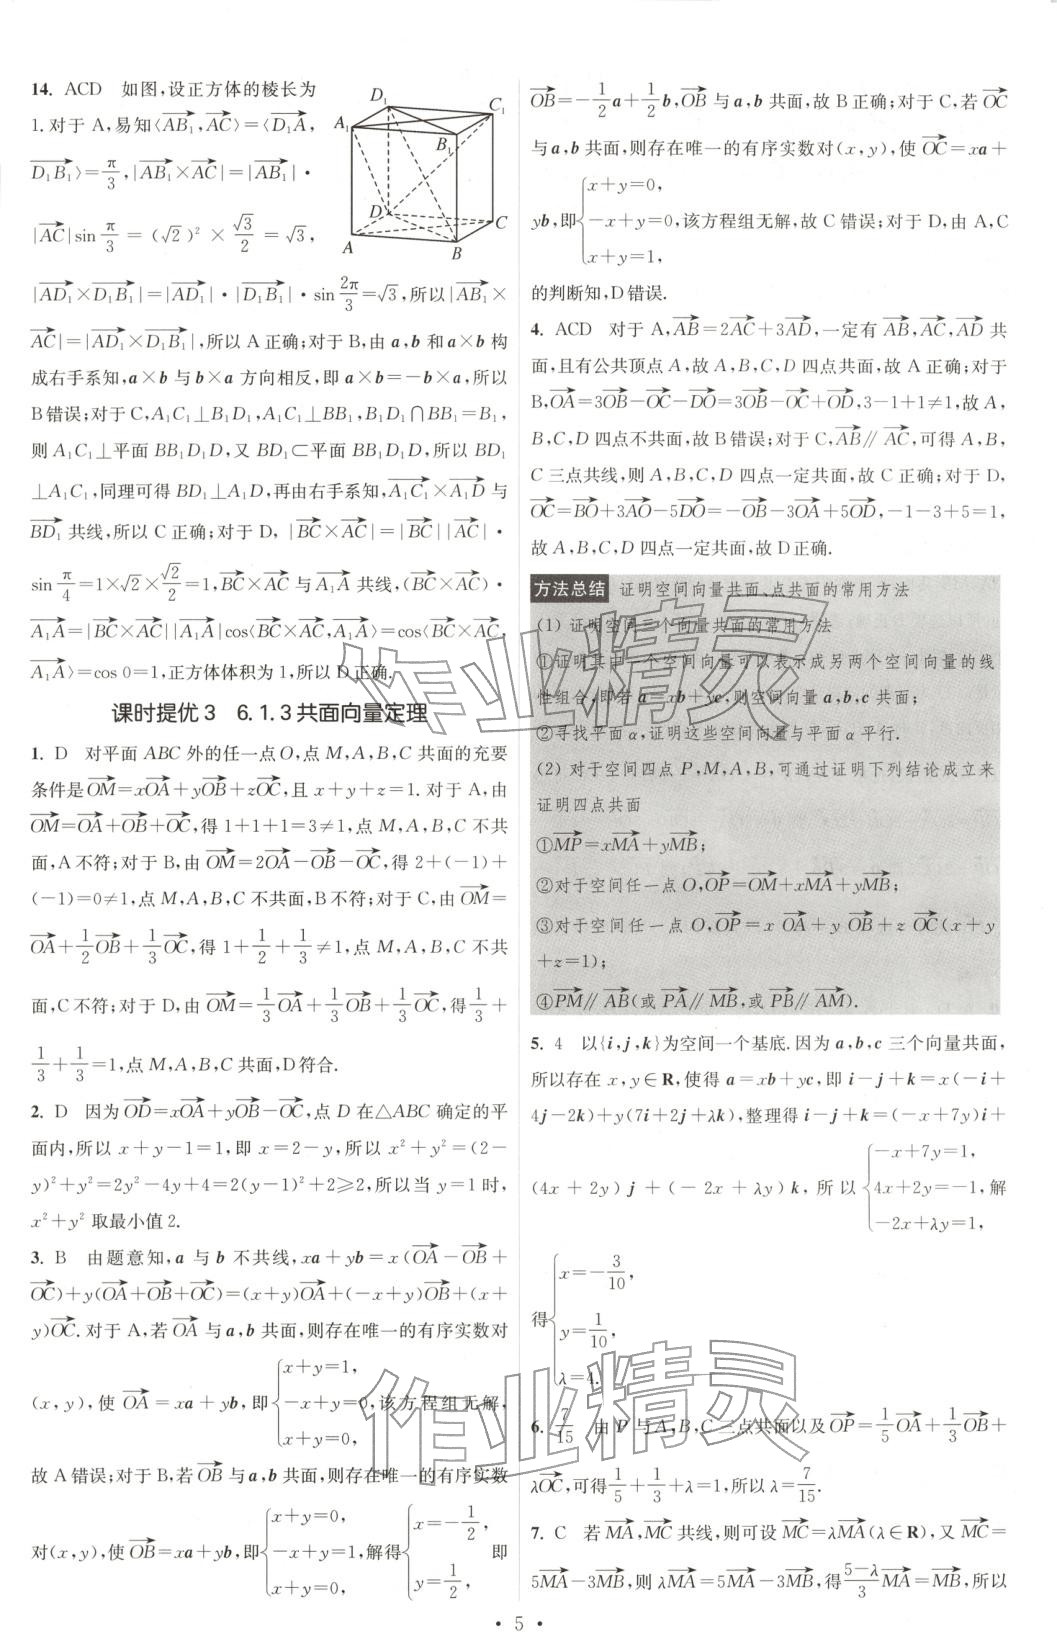 14. ACD 如图,设正方体的棱长为
1.对于 A,易知⟨$\overrightarrow{AB_1}$,$\overrightarrow{AC}$⟩=⟨$\overrightarrow{D_1A}$,
$\overrightarrow{D_1B_1}$⟩=$\frac{π}{3}$,|$\overrightarrow{AB_1}$×$\overrightarrow{AC}$|=|$\overrightarrow{AB_1}$|·
|$\overrightarrow{AC}$|sin$\frac{π}{3}$=($\sqrt{2}$)²×$\frac{\sqrt{3}}{2}$=$\sqrt{3}$,
|$\overrightarrow{AD_1}$×$\overrightarrow{D_1B_1}$|=|$\overrightarrow{AD_1}$|·|$\overrightarrow{D_1B_1}$|·sin$\frac{2π}{3}$=$\sqrt{3}$,所以|$\overrightarrow{AB_1}$×
$\overrightarrow{AC}$|=|$\overrightarrow{AD_1}$×$\overrightarrow{D_1B_1}$|,所以 A 正确;对于 B,由 a,b 和 a×b 构
成右手系知,a×b 与 b×a 方向相反,即 a×b=-b×a,所以
B错误;对于 C,A₁C₁⊥B₁D₁,A₁C₁⊥BB₁,B₁D₁∩BB₁=B₁,
则 A₁C₁⊥平面 BB₁D₁D,又 BD₁⊂平面 BB₁D₁D,所以 BD₁
⊥A₁C₁,同理可得 BD₁⊥A₁D,再由右手系知,$\overrightarrow{A_1C_1}$×$\overrightarrow{A_1D}$ 与
$\overrightarrow{BD_1}$ 共线,所以 C 正确;对于 D,|$\overrightarrow{BC}$×$\overrightarrow{AC}$|=|$\overrightarrow{BC}$||$\overrightarrow{AC}$|·
sin$\frac{π}{4}$=1×$\sqrt{2}$×$\frac{\sqrt{2}}{2}$=1,$\overrightarrow{BC}$×$\overrightarrow{AC}$ 与 $\overrightarrow{A_1A}$ 共线,($\overrightarrow{BC}$×$\overrightarrow{AC}$)·
$\overrightarrow{A_1A}$=|$\overrightarrow{BC}$×$\overrightarrow{AC}$||$\overrightarrow{A_1A}$|cos⟨$\overrightarrow{BC}$×$\overrightarrow{AC}$,$\overrightarrow{A_1A}$⟩=cos⟨$\overrightarrow{BC}$×$\overrightarrow{AC}$,
$\overrightarrow{A_1A}$⟩=cos 0=1,正方体体积为 1,所以 D 正确.
D₁ C₁ A₁ B₁ D C A B
课时提优3 6.1.3共面向量定理
1. D 对平面 ABC 外的任一点 O,点 M,A,B,C 共面的充要
条件是$\overrightarrow{OM}$=x$\overrightarrow{OA}$+y$\overrightarrow{OB}$+z$\overrightarrow{OC}$,且 x+y+z=1.对于 A,由
$\overrightarrow{OM}$=$\overrightarrow{OA}$+$\overrightarrow{OB}$+$\overrightarrow{OC}$,得1+1+1=3≠1,点 M,A,B,C 不共
面,A不符;对于 B,由 $\overrightarrow{OM}$=2$\overrightarrow{OA}$-$\overrightarrow{OB}$-$\overrightarrow{OC}$,得 2+(-1)+
(-1)=0≠1,点 M,A,B,C 不共面,B不符;对于 C,由$\overrightarrow{OM}$=
$\overrightarrow{OA}$+$\frac{1}{2}$$\overrightarrow{OB}$+$\frac{1}{3}$$\overrightarrow{OC}$,得 1+$\frac{1}{2}$+$\frac{1}{3}$≠1,点 M,A,B,C 不共
面,C不符;对于 D,由$\overrightarrow{OM}$=$\frac{1}{3}$$\overrightarrow{OA}$+$\frac{1}{3}$$\overrightarrow{OB}$+$\frac{1}{3}$$\overrightarrow{OC}$,得$\frac{1}{3}$+
$\frac{1}{3}$+$\frac{1}{3}$=1,点 M,A,B,C 共面,D符合.
2. D 因为$\overrightarrow{OD}$=x$\overrightarrow{OA}$+y$\overrightarrow{OB}$-$\overrightarrow{OC}$,点 D 在△ABC 确定的平
面内,所以 x+y-1=1,即 x=2-y,所以 x²+y²=(2-
y)²+y²=2y²-4y+4=2(y-1)²+2⩾2,所以当 y=1 时,
x²+y² 取最小值 2.
3. B 由题意知,a 与 b 不共线,xa+yb=x($\overrightarrow{OA}$-$\overrightarrow{OB}$+
$\overrightarrow{OC}$)+y($\overrightarrow{OA}$+$\overrightarrow{OB}$+$\overrightarrow{OC}$)=(x+y)$\overrightarrow{OA}$+(-x+y)$\overrightarrow{OB}$+(x+
y)$\overrightarrow{OC}$.对于 A,若 $\overrightarrow{OA}$ 与 a,b 共面,则存在唯一的有序实数对
(x,y),使 $\overrightarrow{OA}$=xa+yb,即{x+y=1, -x+y=0, x+y=0, 该方程组无解,
故 A 错误;对于 B,若$\overrightarrow{OB}$与 a,b 共面,则存在唯一的有序实数
对(x,y),使$\overrightarrow{OB}$=xa+yb,即{x+y=0, -x+y=1, x+y=0, 解得{x=-$\frac{1}{2}$, y=$\frac{1}{2}$, 即
$\overrightarrow{OB}$=-$\frac{1}{2}$a+$\frac{1}{2}$b,$\overrightarrow{OB}$与 a,b 共面,故 B 正确;对于 C,若 $\overrightarrow{OC}$
与 a,b 共面,则存在唯一的有序实数对(x,y),使 $\overrightarrow{OC}$=xa+
yb,即{x+y=0, -x+y=0, x+y=1, 该方程组无解,故 C 错误;对于 D,由 A,C
的判断知,D错误.
4. ACD 对于 A,$\overrightarrow{AB}$=2$\overrightarrow{AC}$+3$\overrightarrow{AD}$,一定有 $\overrightarrow{AB}$,$\overrightarrow{AC}$,$\overrightarrow{AD}$ 共
面,且有公共顶点 A,故 A,B,C,D 四点共面,故 A 正确;对于
B,$\overrightarrow{OA}$=3$\overrightarrow{OB}$-$\overrightarrow{OC}$-$\overrightarrow{DO}$=3$\overrightarrow{OB}$-$\overrightarrow{OC}$+$\overrightarrow{OD}$,3-1+1≠1,故 A,
B,C,D 四点不共面,故 B 错误;对于 C,$\overrightarrow{AB}$∥$\overrightarrow{AC}$,可得 A,B,
C 三点共线,则 A,B,C,D 四点一定共面,故 C 正确;对于 D,
$\overrightarrow{OC}$=$\overrightarrow{BO}$+3$\overrightarrow{AO}$-5$\overrightarrow{DO}$=-$\overrightarrow{OB}$-3$\overrightarrow{OA}$+5$\overrightarrow{OD}$,-1-3+5=1,
故 A,B,C,D 四点一定共面,故 D 正确.
方法总结 证明空间向量共面、点共面的常用方法
(1) 证明空间三个向量共面的常用方法
①证明其中一个空间向量可以表示成另两个空间向量的线
性组合,即若 a=xb+yc,则空间向量 a,b,c 共面;
②寻找平面 α,证明这些空间向量与平面 α 平行.
(2) 对于空间四点 P,M,A,B,可通过证明下列结论成立来
证明四点共面
①$\overrightarrow{MP}$=x$\overrightarrow{MA}$+y$\overrightarrow{MB}$;
②对于空间任一点 O,$\overrightarrow{OP}$=$\overrightarrow{OM}$+x$\overrightarrow{MA}$+y$\overrightarrow{MB}$;
③对于空间任一点 O,$\overrightarrow{OP}$=x $\overrightarrow{OA}$+y $\overrightarrow{OB}$+z $\overrightarrow{OC}$(x+y
+z=1);
④$\overrightarrow{PM}$∥$\overrightarrow{AB}$(或 $\overrightarrow{PA}$∥$\overrightarrow{MB}$,或 $\overrightarrow{PB}$∥$\overrightarrow{AM}$).
5. 4 以{i,j,k}为空间一个基底.因为 a,b,c 三个向量共面,
所以存在 x,y∈R,使得 a=xb+yc,即 i-j+k=x(-i+
4j-2k)+y(7i+2j+λk),整理得 i-j+k=(-x+7y)i+
(4x+2y)j+(-2x+λy)k,所以{-x+7y=1, 4x+2y=-1, -2x+λy=1, 解
得{x=-$\frac{3}{10}$, y=$\frac{1}{10}$, λ=4.
6. $\frac{7}{15}$ 由 P 与 A,B,C 三点共面以及$\overrightarrow{OP}$=$\frac{1}{5}$$\overrightarrow{OA}$+$\frac{1}{3}$$\overrightarrow{OB}$+
λ$\overrightarrow{OC}$,可得$\frac{1}{5}$+$\frac{1}{3}$+λ=1,所以 λ=$\frac{7}{15}$.
7. C 若$\overrightarrow{MA}$,$\overrightarrow{MC}$共线,则可设 $\overrightarrow{MC}$=λ$\overrightarrow{MA}$(λ∈R),又$\overrightarrow{MC}$=
5$\overrightarrow{MA}$-3$\overrightarrow{MB}$,则 λ$\overrightarrow{MA}$=5$\overrightarrow{MA}$-3$\overrightarrow{MB}$,得$\frac{5-λ}{3}$$\overrightarrow{MA}$=$\overrightarrow{MB}$,所以
· 5 ·
作业精灵
作业精灵